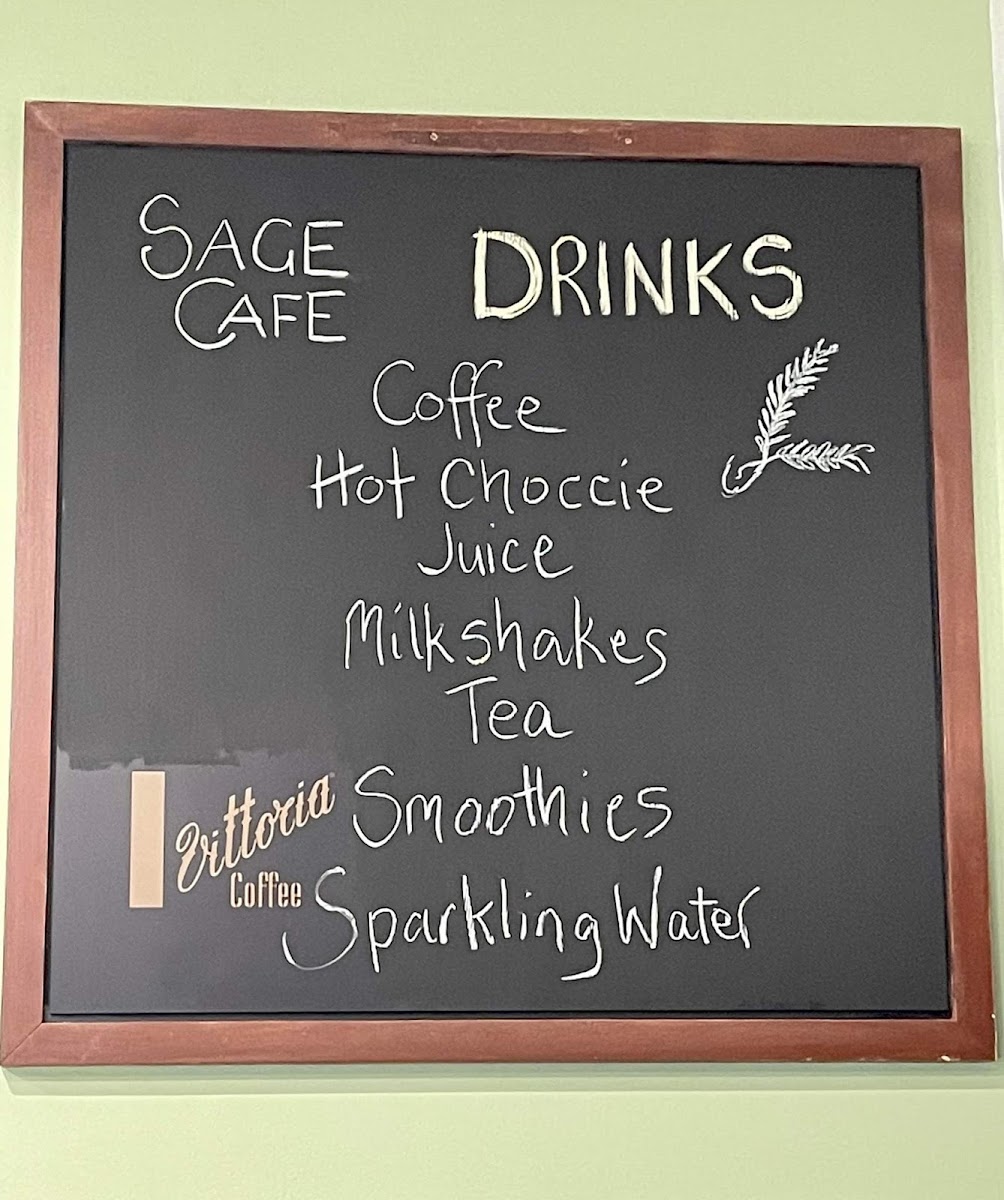 SAGE
CAFE
DRINKS
Coffee
Hot Choccie
Juice
Milkshakes
Tea
Smoothies
Sparkling Water
Vittoria
Coffee